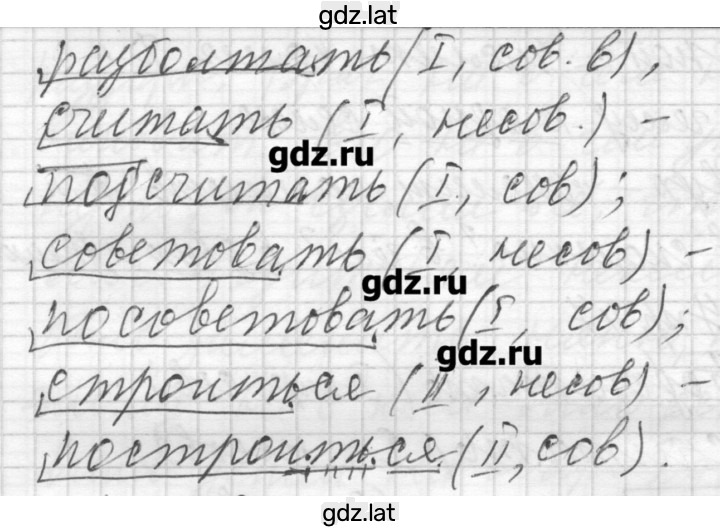 gdz.lat
разболтать (I, сов. в),
считать (I, несов.) -
gdz.ru
подсчитать (I, сов);
советовать (I, несов) -
gdz.ru
посоветовать (I, сов);
gdz.ru
строиться (II, несов) -
построиться (II, сов).
gdz.lat